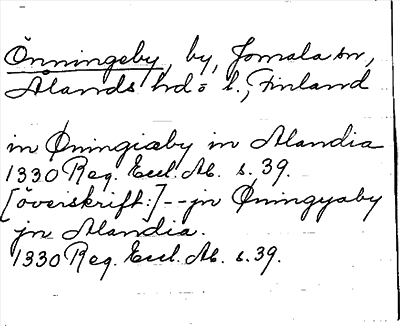 Önningeby, by, Jomala sn,
Ålands hd o l., Finland
in Øningiæby in Alandia
1330 Reg. Eccl. Ab. s. 39.
[överskrift:]--jn Øningyaby
jn Alandia.
1330 Reg. Eccl. Ab. s. 39.